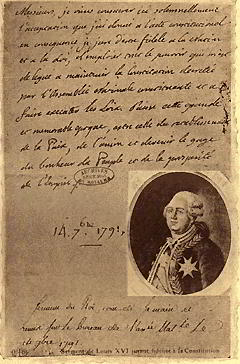 Messieurs, je viens consacrer ici solennellement
l'acceptation que j'ai donnée à l'acte constitutionnel
en conséquence je jure d'être fidèle a la nation
et a la loi, d'employer tout le pouvoir qui m'est
délégué a maintenir la Constitution décrétée
par l'Assemblée nationale constituante et a
faire executer les Loix. Puisse cette grande
et memorable époque, être celle du retablissement
de la Paix, de l'union et devenir le gage
du bonheur du Peuple et de la prosperité
de l'Empire
14. 7bre 1791.
du Roi, de sa main et
remis sur le Bureau de
1791.
Serment de Louis XVI jurant fidélité à la Constitution